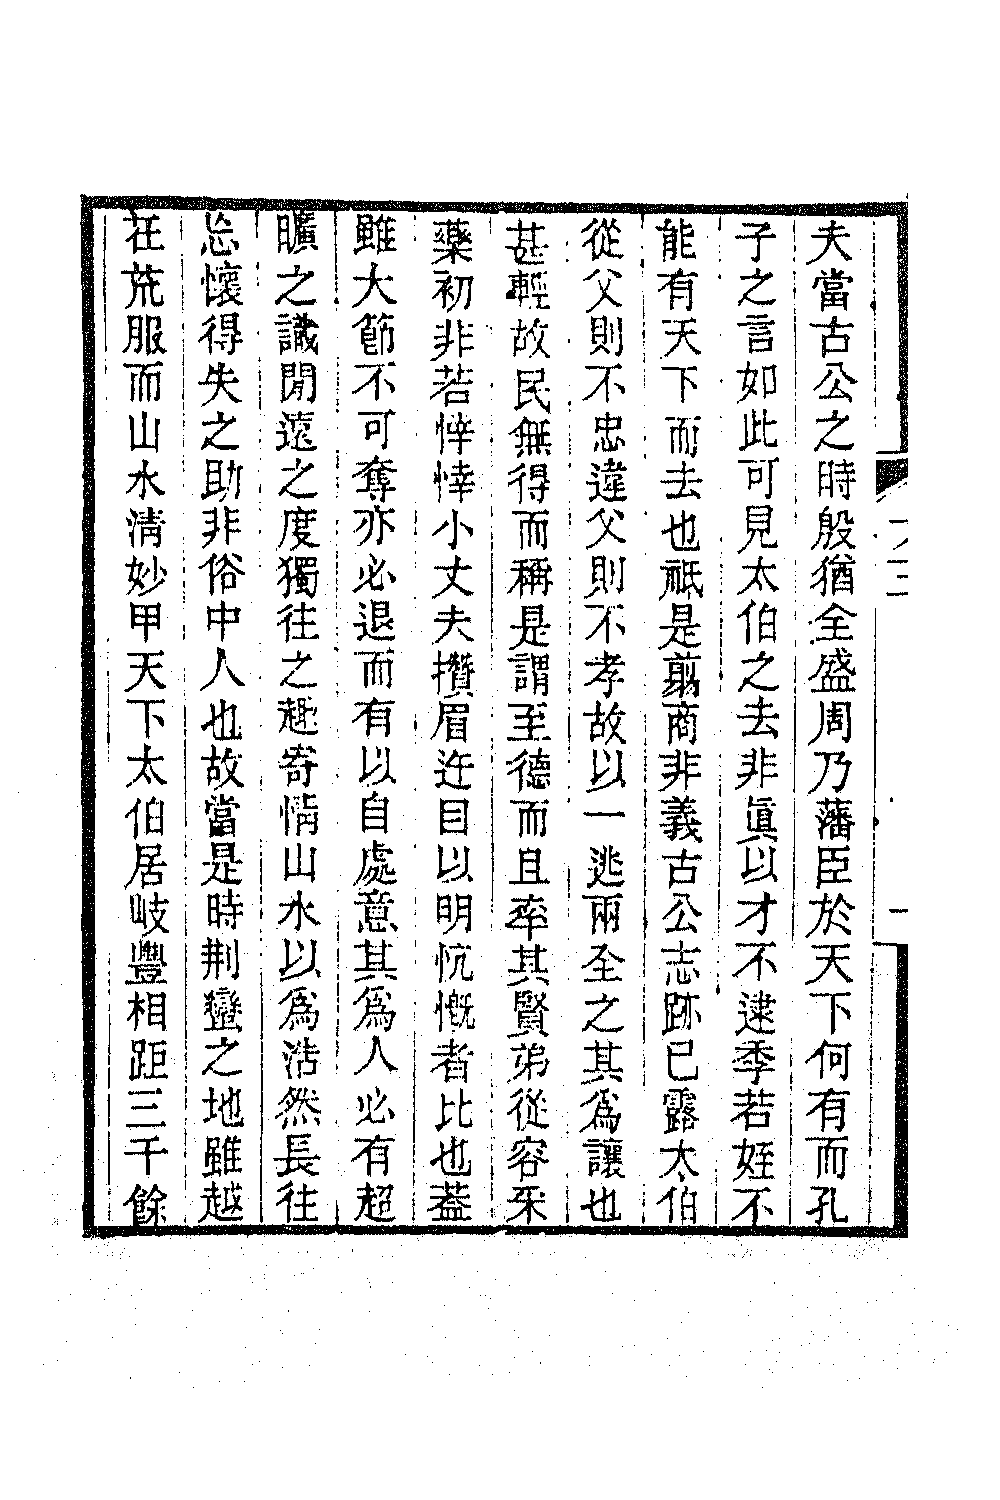 夫當古公之時殷猶全盛周乃藩臣於天下何有而孔
子之言如此可見太伯之去非眞以才不逮季若姪不
能有天下而去也祇是翦商非義古公志跡已露太伯
從父則不忠違父則不孝故以一逃兩全之其爲讓也
甚輕故民無得而稱是謂至德而且率其賢弟從容采
藥初非若悻悻小丈夫攢眉迕目以明忼慨者比也葢
雖大節不可奪亦必退而有以自處意其爲人必有超
曠之識閒遠之度獨往之趣寄情山水以爲浩然長往
忘懷得失之助非俗中人也故當是時荆蠻之地雖越
在荒服而山水淸妙甲天下太伯居岐豐相距三千餘